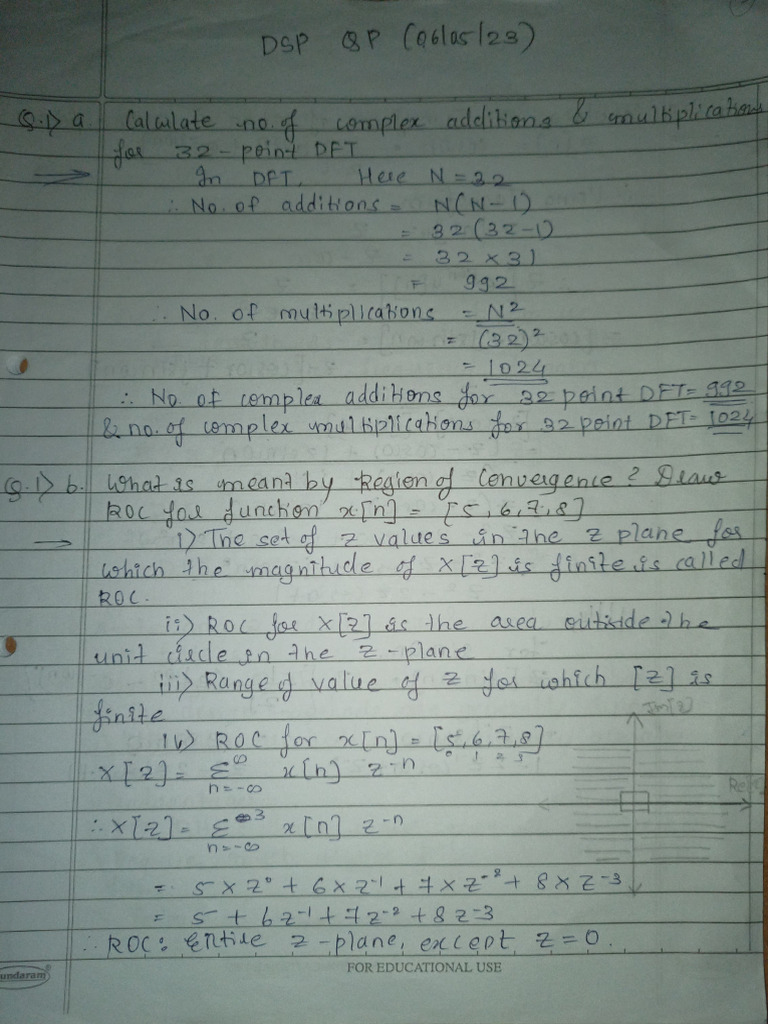 DSP QP (06/05/23)
Q.1) a. Calculate no. of complex additions & multiplications
for 32-point DFT
In DFT, Here N = 32
∴ No. of additions = N(N-1)
= 32(32-1)
= 32 × 31
= 992
∴ No. of multiplications = N²
= (32)²
= 1024
∴ No. of complex additions for 32 point DFT = 992
& no. of complex multiplications for 32 point DFT = 1024
Q.1) b. What is meant by Region of Convergence? Draw
ROC for function x[n] = [5, 6, 7, 8]
i) The set of z values in the z plane for
which the magnitude of X[z] is finite is called
ROC.
ii) ROC for X[z] is the area outside the
unit circle in the z-plane
iii) Range of value of z for which [z] is
finite
iv) ROC for x[n] = [5, 6, 7, 8]
0 1 2 3
Im[z]
X[z] = Σ∞ n=-∞ x(n) z-n
Re[z]
∴ X[z] = Σ3 n=-∞ x[n] z-n
= 5 × z⁰ + 6 × z-1 + 7 × z-2 + 8 × z-3
= 5 + 6z-1 + 7z-2 + 8z-3
∴ ROC: Entire z-plane, except z = 0.
undaram
FOR EDUCATIONAL USE